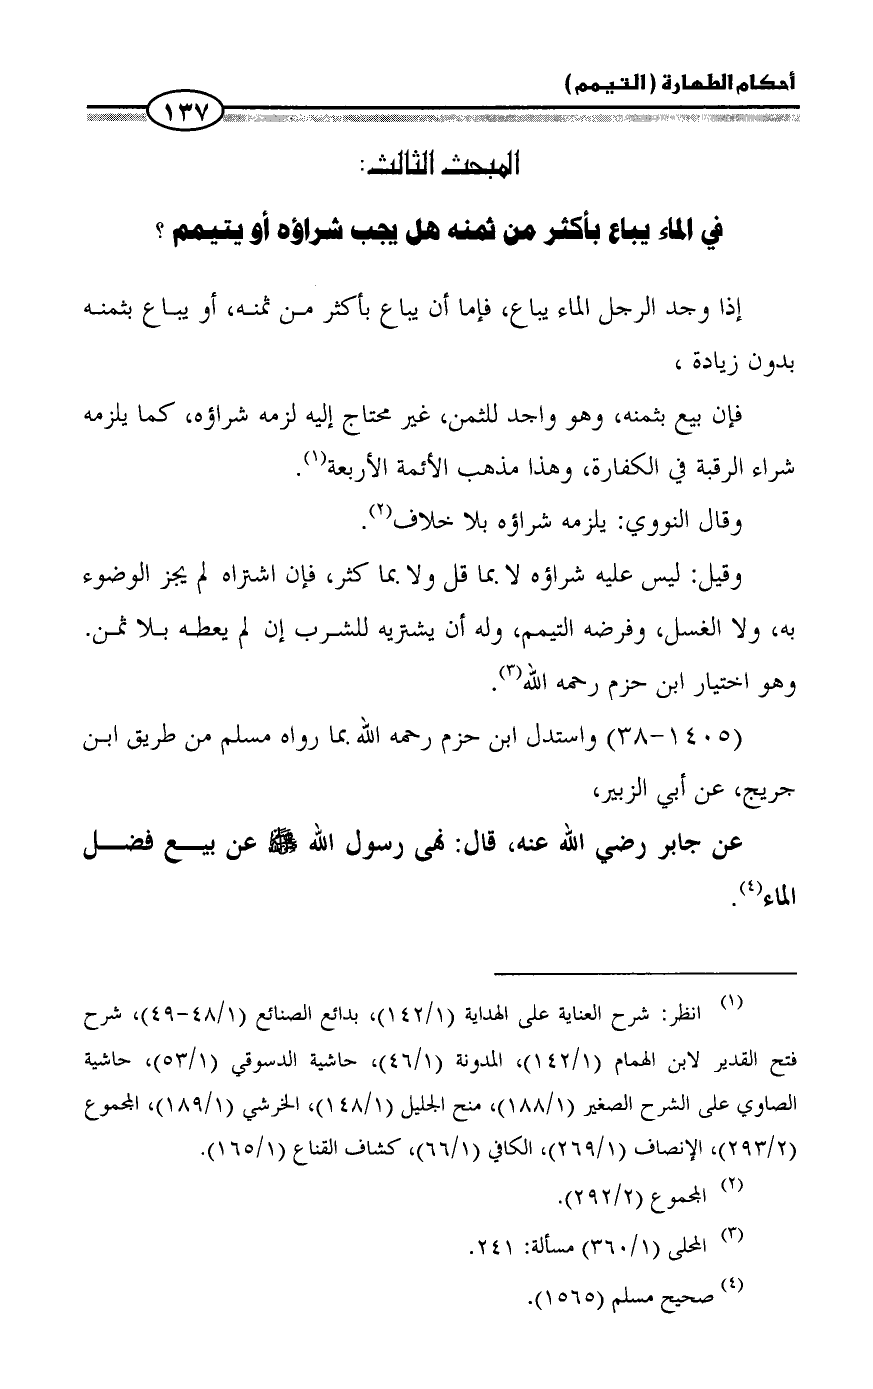 أحكام الطهارة (التيمم)
١٣٧
المبحث الثالث:
في الماء يباع بأكثر من ثمنه هل يجب شراؤه أو يتيمم ؟
إذا وجد الرجل الماء يباع، فإما أن يباع بأكثر من ثمنه، أو يباع بثمنه
بدون زيادة ،
فإن بيع بثمنه، وهو واجد للثمن، غير محتاج إليه لزمه شراؤه، كما يلزمه
شراء الرقبة في الكفارة، وهذا مذهب الأئمة الأربعة(١).
وقال النووي: يلزمه شراؤه بلا خلاف(٢).
وقيل: ليس عليه شراؤه لا بما قل ولا بما كثر، فإن اشتراه لم يجز الوضوء
به، ولا الغسل، وفرضه التيمم، وله أن يشتريه للشرب إن لم يعطه بلا ثمن.
وهو اختيار ابن حزم رحمه الله(٣).
(١٤٠٥-٣٨) واستدل ابن حزم رحمه الله بما رواه مسلم من طريق ابن
جريج، عن أبي الزبير،
عن جابر رضي الله عنه، قال: نهى رسول الله ﷺ عن بيع فضل
الماء(٤).
(١) انظر: شرح العناية على الهداية (١٤٢/١)، بدائع الصنائع (٤٨/١-٤٩)، شرح
فتح القدير لابن الهمام (١٤٢/١)، المدونة (٤٦/١)، حاشية الدسوقي (٥٣/١)، حاشية
الصاوي على الشرح الصغير (١٨٨/١)، منح الجليل (١٤٨/١)، الخرشي (١٨٩/١)، المجموع
(٢٩٣/٢)، الإنصاف (٢٦٩/١)، الكافي (٦٦/١)، كشاف القناع (١٦٥/١).
(٢) المجموع (٢٩٢/٢).
(٣) المحلى (٣٦٠/١) مسألة: ٢٤١.
(٤) صحيح مسلم (١٥٦٥).